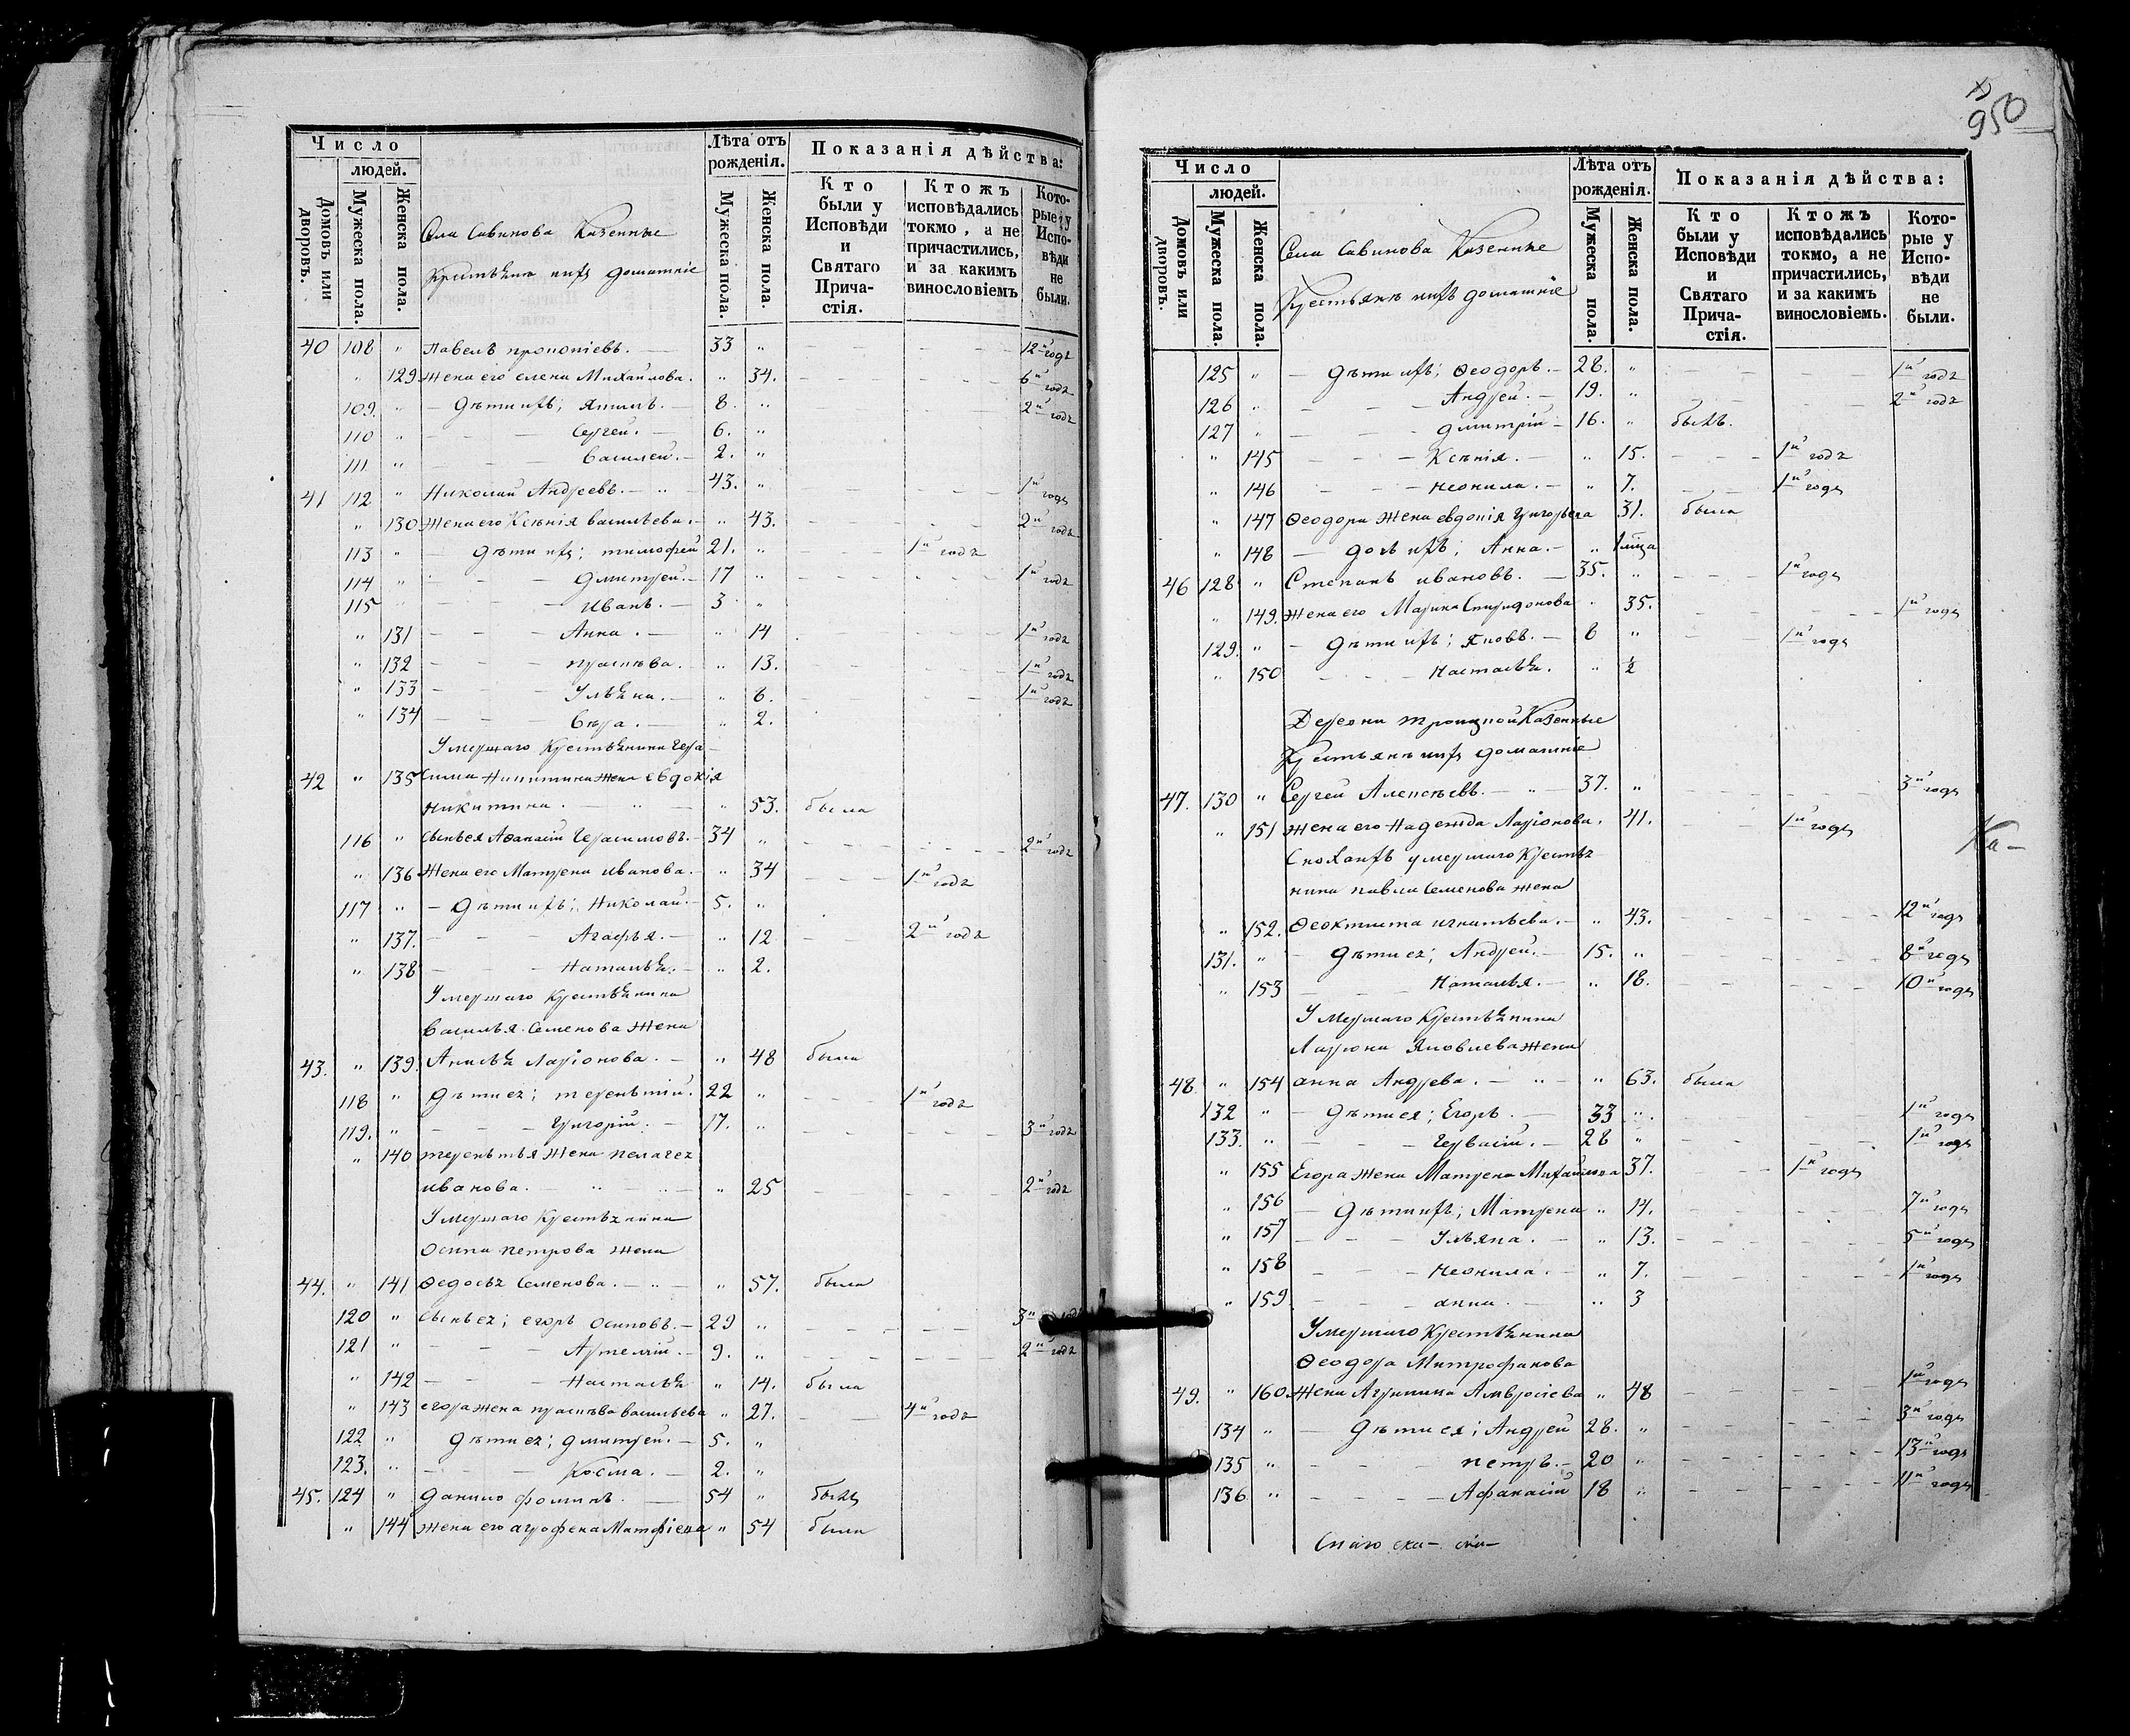 950
Число
людей.
Домовъ или дворовъ.
Мужеска пола.
Женска пола.
Лѣта отъ рожденія.
Мужеска пола.
Женска пола.
Показанія дѣйства:
Кто были у Исповѣди и Святаго Причастія.
Ктожъ исповѣдались токмо, а не причастились, и за какимъ винословіемъ
Которые у Исповѣди не были.
Села Савинова Казенные
Крестьяне ихъ домашніе
40 108 " Павелъ 33 " 12й годъ
" 129 Жена его елена Михайлова. " 34. 6й годъ
109. " Дѣти ихъ; 8. " 2й годъ
110 " Сергей. 6. "
111 " Василей. 2. "
41 112 " Николай Андреевъ. 43. " 1й годъ
" 130 Жена его Ксѣнія васильева. " 43. 2й годъ
113 " Дѣти ихъ; тимофей 21. " 1й годъ
114 " Дмитрей. 17 " 1й годъ
115 " Иванъ. 3 "
" 131 Анна. " 14 1й годъ
" 132 прасковa. " 13. 1й годъ
" 133 Ульяна. " 8. 1й годъ
" 134 Вѣра. " 2.
Умершаго Крестьянина Гера-
42 " 135 сима Никитина жена Евдокія
никитина. " 53. была
116 " Сынъ ея Афанасій Герасимовъ. 34 " 2й годъ
" 136 Жена его Матрена иванова. " 34 1й годъ
117 " Дѣти ихъ; Николай. 5. "
" 137. Агафья. " 12 2й годъ
" 138 Наталья. " 2.
Умершаго Крестьянина
Василья Семенова Жена
43. " 139. Ларіонова. " 48 была
118 " Дѣти ея; терентій. 22 " 1й годъ
119. " Григорій. 17. " 3й годъ
" 140 терентья Жена пелагея
иванова. " 25 2й годъ
Умершаго Крестьянина
Осипа петрова жена
44. " 141 Федосья Семенова. " 57. была
120 " Сынъ ея; егоръ осиповъ. 29 " 3й годъ
121 " 9. " 2й годъ
" 142 Настасья " 14. была
" 143 егора жена прасковa васильева " 27. 4й годъ
122 " Дѣти ея; дмитрей. 5. "
123. " Косма. 2. "
45. 124 " Данило фоминъ. 54 " былъ
" 144 жена его агрофена Матфіева " 54 была
Число
людей.
Домовъ или дворовъ.
Мужеска пола.
Женска пола.
Лѣта отъ рожденія.
Мужеска пола.
Женска пола.
Показанія дѣйства:
Кто были у Исповѣди и Святаго Причастія.
Ктожъ исповѣдались токмо, а не причастились, и за какимъ винословіемъ.
Которые у Исповѣди не были.
Села Савинова Казенные
Крестьянъ ихъ домашніе
125 " Дѣти ихъ; Феодоръ. 28. " 1й годъ
126 " Андрей. 19. " 2й годъ
127 " Дмитрій 16. " былъ.
" 145 Ксѣнія. " 15. 1й годъ
" 146 неонила. " 7. 1й годъ
" 147 Феодора жена евдокія григорьева 31. была
" 148 дочь ихъ; Анна. " 1 мѣца
46 128 " Степанъ ивановъ. 35. " 1й годъ
" 149. жена его Марина Спиридонова " 35. 1й годъ
129. " Дѣти ихъ; Яковъ. 8 " 1й годъ
" 150 Настасья. " ½
Деревни троицкой Казенные
Крестьянъ ихъ домашніе
47. 130 " Сергей Алексѣевъ. 37. " 3й годъ
" 151 жена его Надежда Ларіонова. 41. 1й годъ
Сноха ихъ умершаго Крестья-
нина павла Семенова жена
" 152. Феоктиста игнатьева. " 43. 12й годъ
131. " Дѣти ея; Андрей. 15. " 8й годъ
" 153 Наталья. " 18. 10й годъ
Умершаго Крестьянина
Лариона Яковлева жена
48 " 154 анна Андрева. " 63. была
132 " Дѣти ея; Егоръ. 33 " 1й годъ
133. " Гервасій. 28 " 1й годъ
" 155 Егора жена Матрена Михайлова 37. 1й годъ
" 156 Дѣти ихъ; Матрена " 14. 7й годъ
" 157 Ульяна. " 13. 5й годъ
" 158 неонила. " 7. 1й годъ
" 159. анна. " 3
Умершаго Крестьянина
Феодора Митрофанова
49. " 160. жена Агрипина Амвросіева " 48 1й годъ
134 " Дѣти ея; Андрей 28. " 3й годъ
135 " петръ. 20 " 13й годъ
136 " Афанасій 18 " 11й годъ
Ка-